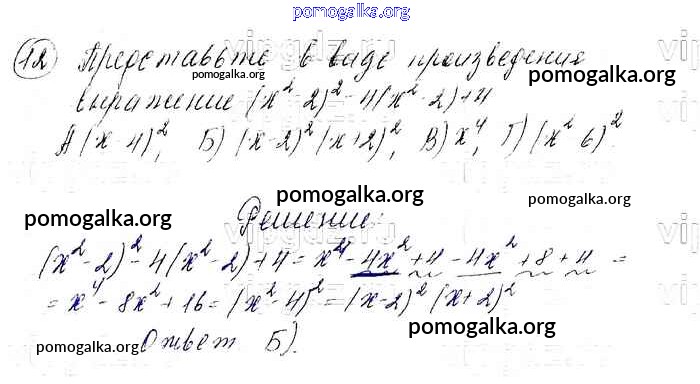 pomogalka.org
12 Представьте в виде произведения
pomogalka.org
pomogalka.org
выражение (x²-2)²-4(x²-2)+4
А (x-4)², Б) (x-2)²(x+2)², В) x⁴, Г) (x²-6)²
pomogalka.org
pomogalka.org
pomogalka.org
Решение:
(x²-2)²-4(x²-2)+4=x⁴-4x²+4-4x²+8+4=
=x⁴-8x²+16=(x²-4)²=(x-2)²(x+2)²
pomogalka.org
pomogalka.org
Ответ Б).